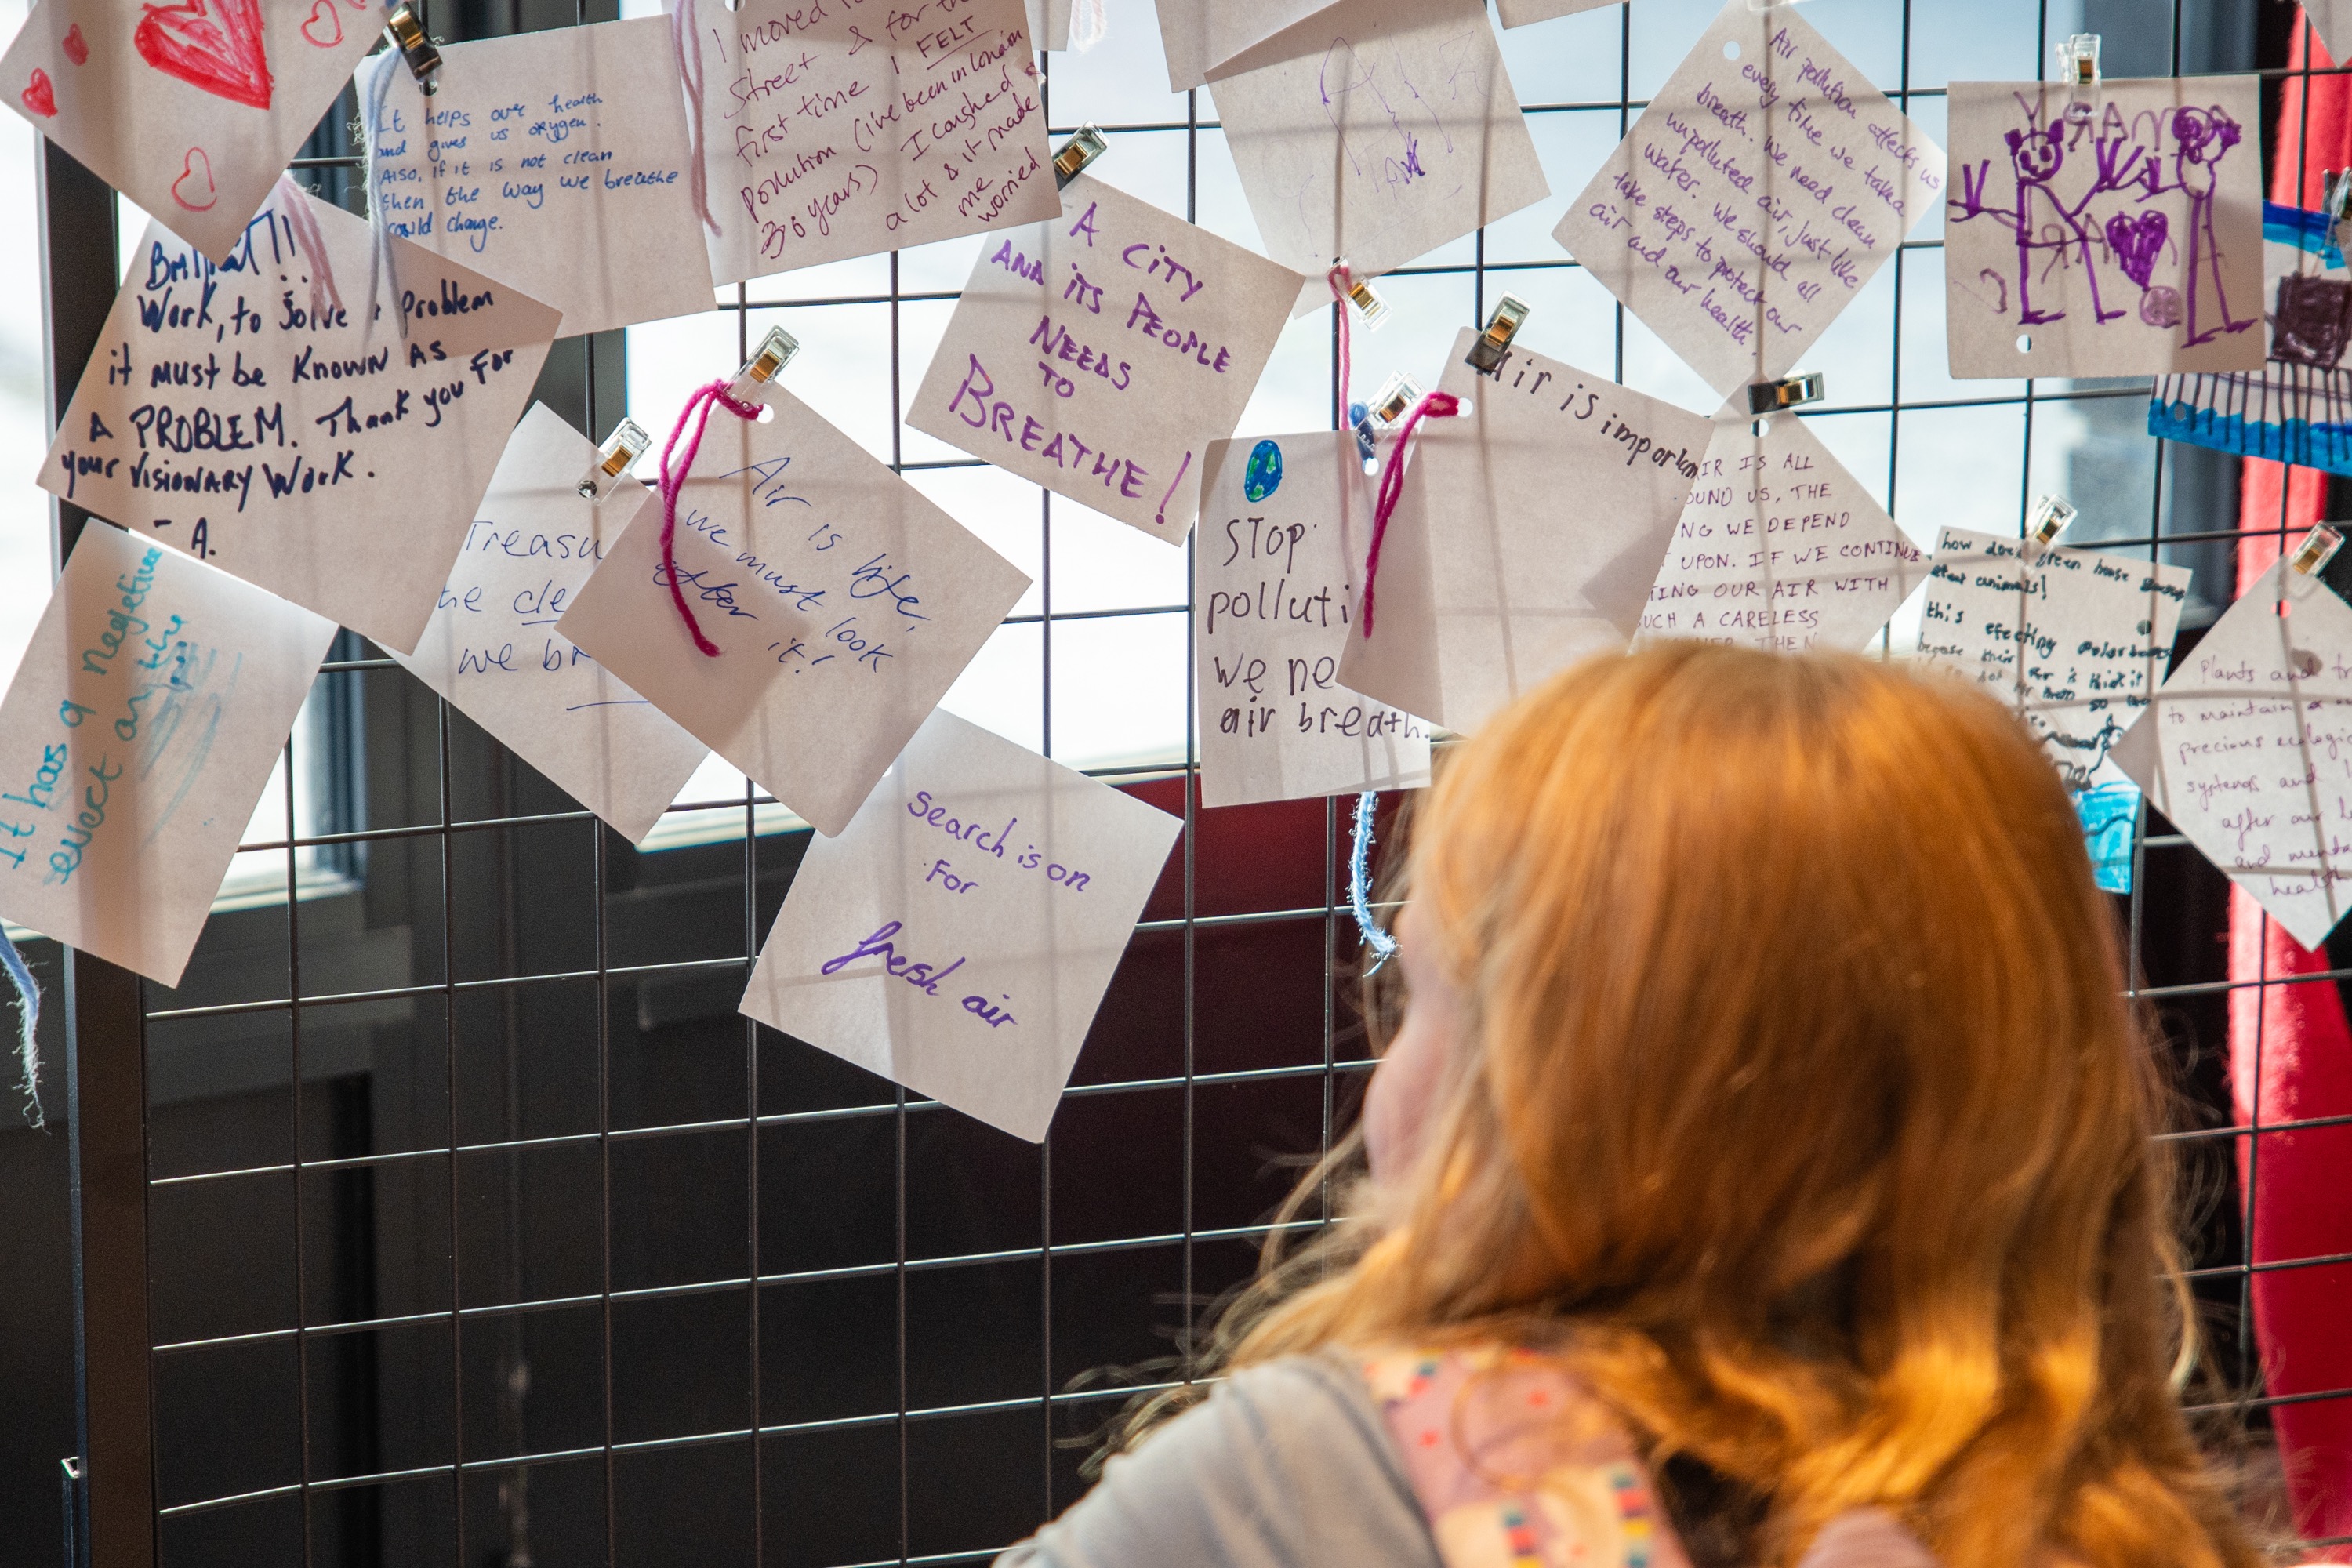 It helps our health
and gives us oxygen.
Also, if it is not clean
then the way we breathe
could change.
I moved
Street & for the
first time I FELT
Pollution (I've been in London
36 years) I coughed
a lot & it made
me
worried
Air pollution affects us
every time we take a
breath. We need clean
unpolluted air, just like
water. We should all
take steps to protect our
air and our health.
Work, to Solve a Problem
it must be KNOWN AS
A PROBLEM. Thank you For
your VISIONARY Work.
- A.
A CITY
AND iTS PEOPLE
NEEDS
TO
BREATHE!
Air is importan
STOP
polluti
we ne
air breath.
IR IS ALL
OUND US, THE
NG WE DEPEND
UPON. IF WE CONTINUE
TING OUR AIR WITH
UCH A CARELESS
THEN
how does green house
this efecting Polar bears
Treasu
he cle
we br
Air is life,
we must look
after it!
It has a negetive
evect on the
Search is on
For
fresh air
Plants and tr
to maintain
precious ecologic
systems and
after our
and menta
health